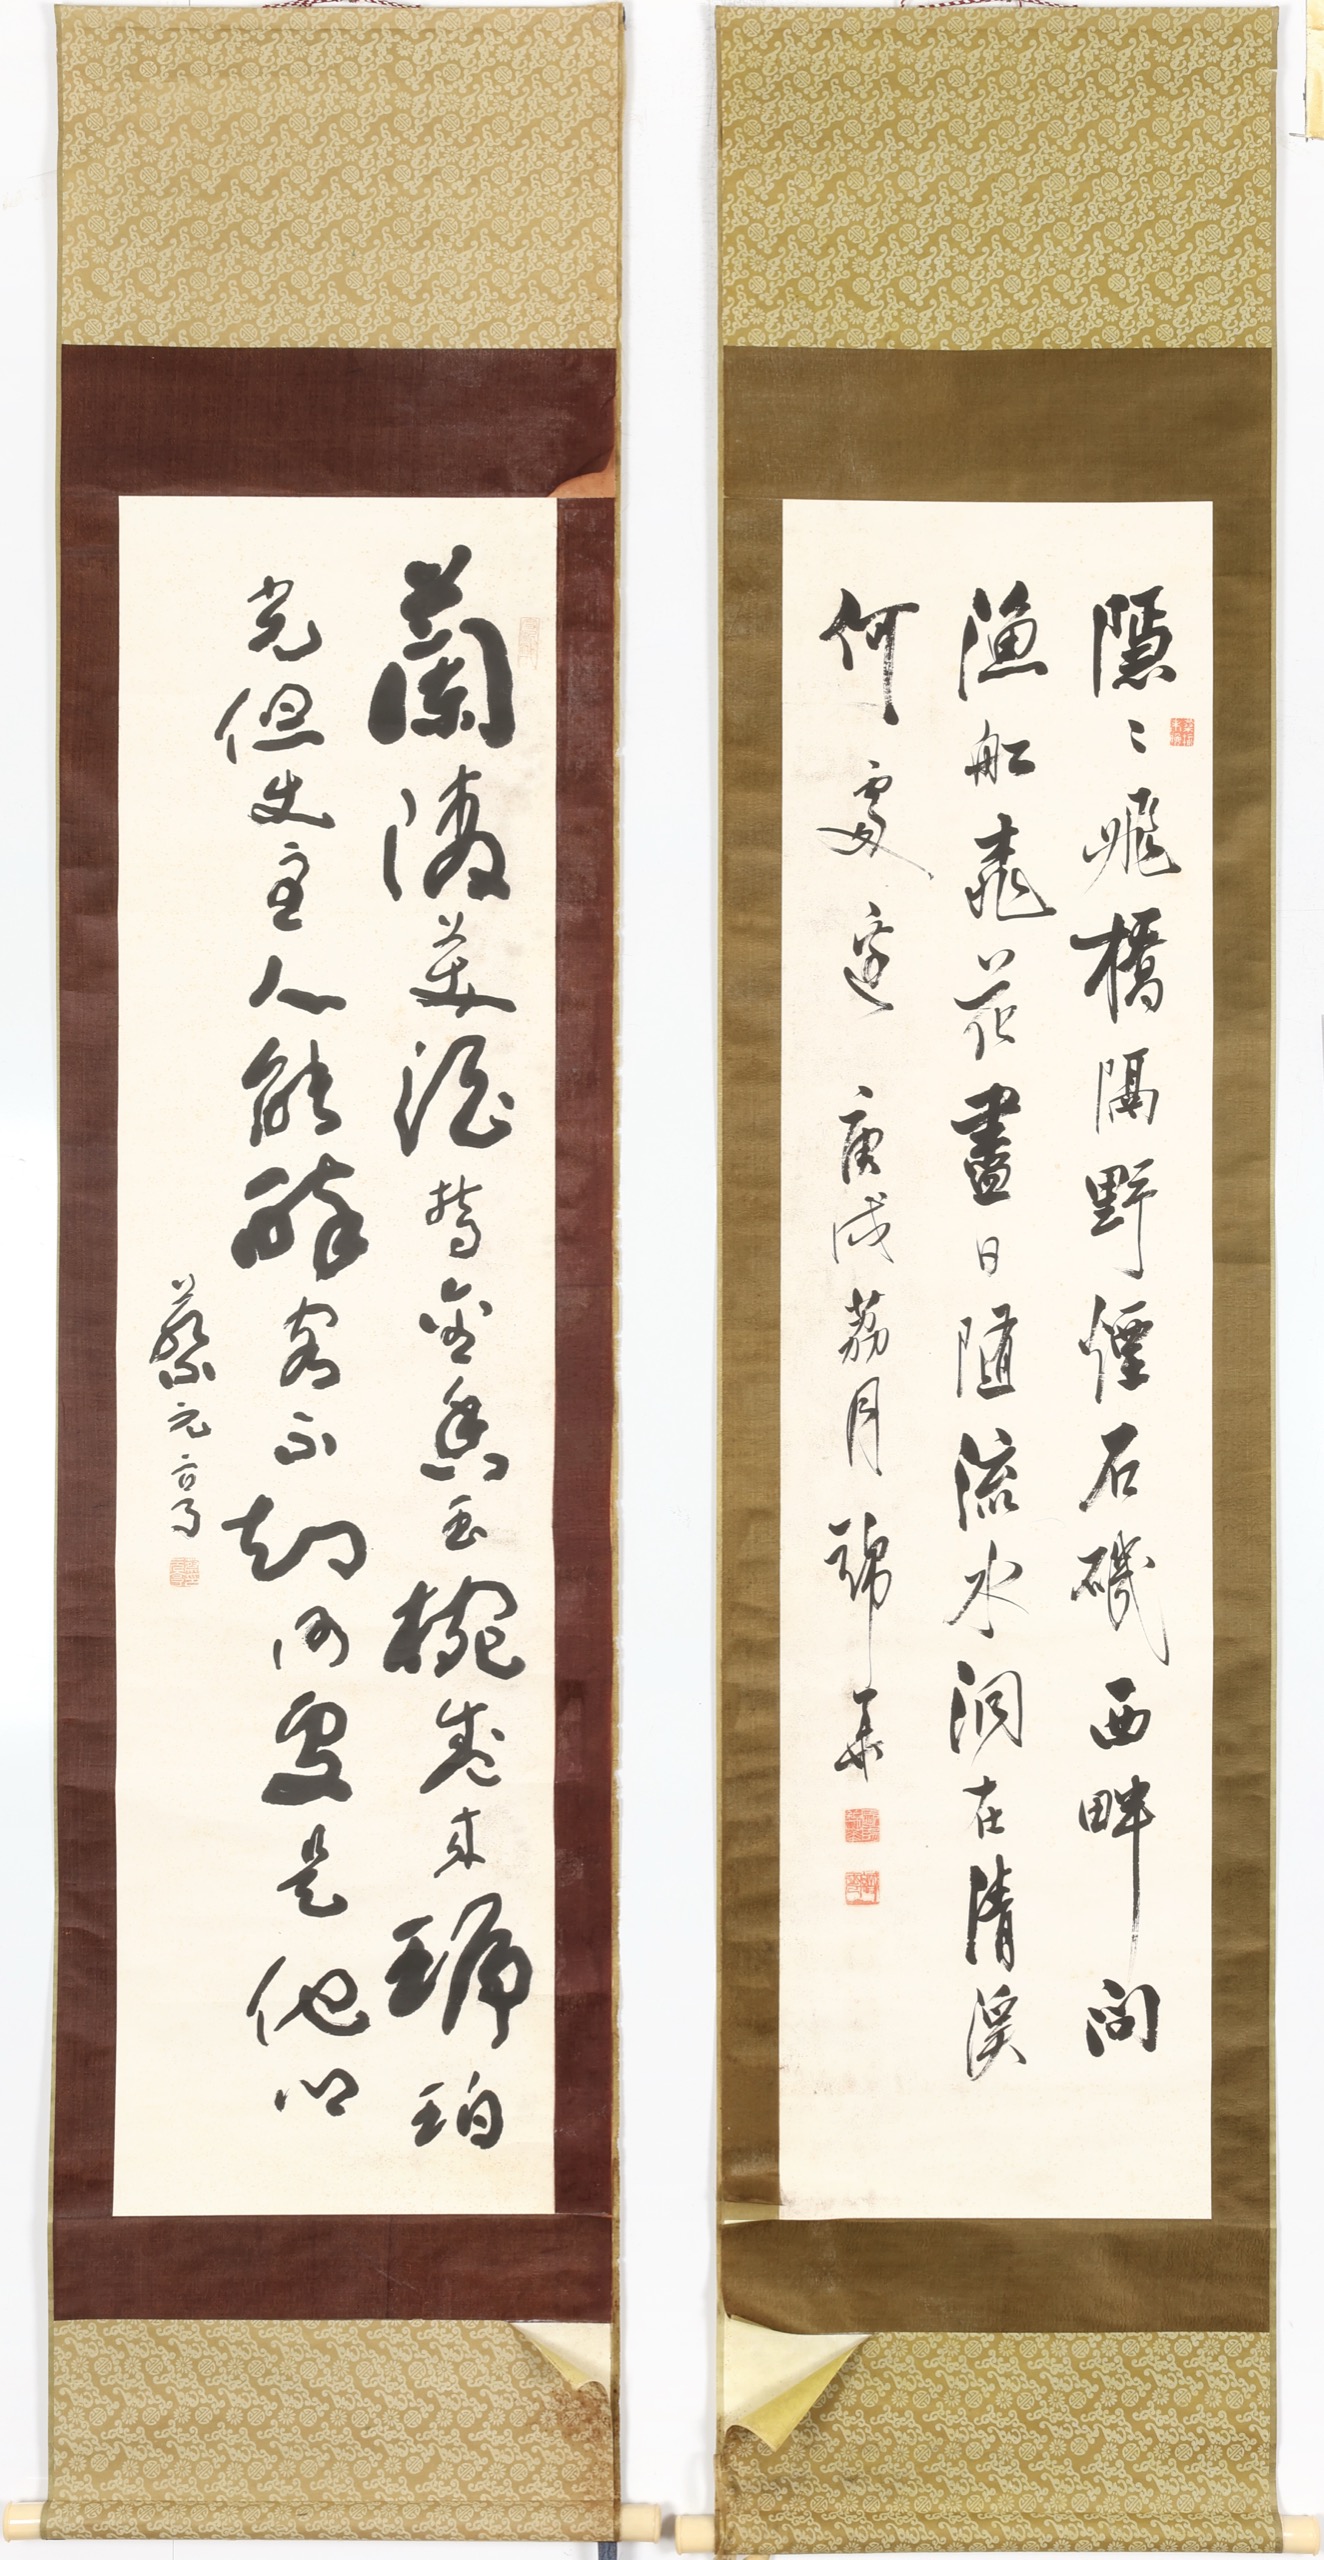 隱〻飛橋隔野煙石磯西畔問
漁船桃花盡日隨流水洞在清溪
何處邊 庚戌荔月 華
蘭陵美酒鬱金香玉椀盛來琥珀
光但使主人能醉客不知何處是他鄉
蔡元亨